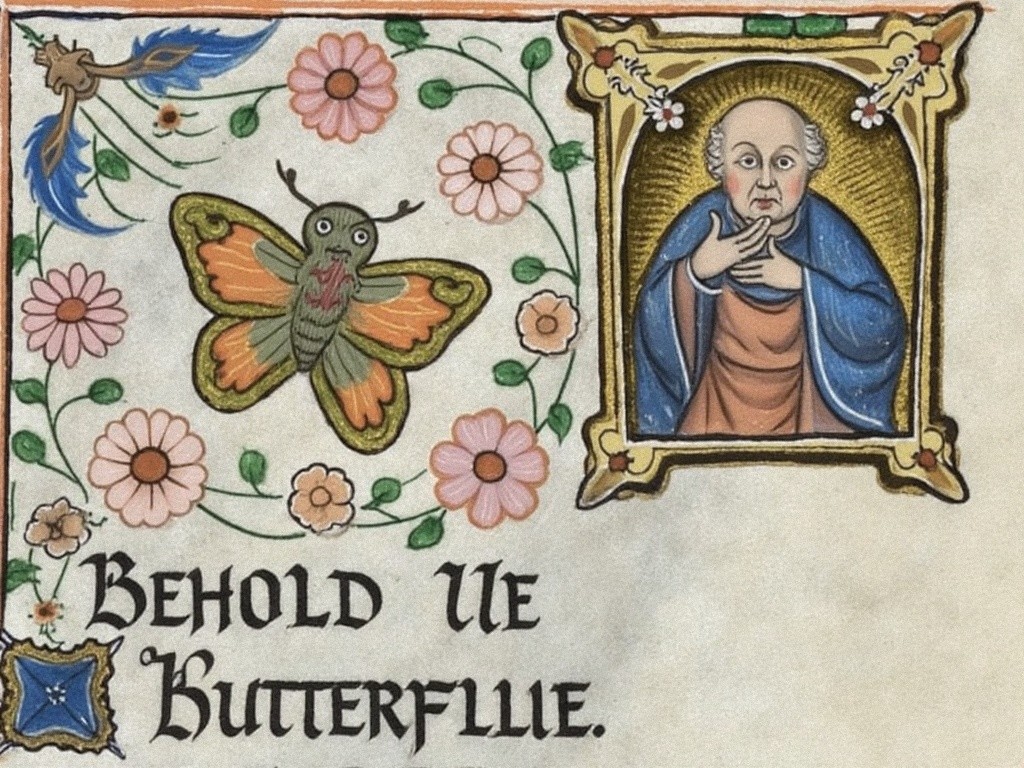 BEHOLD
BUTTERFLLIE.